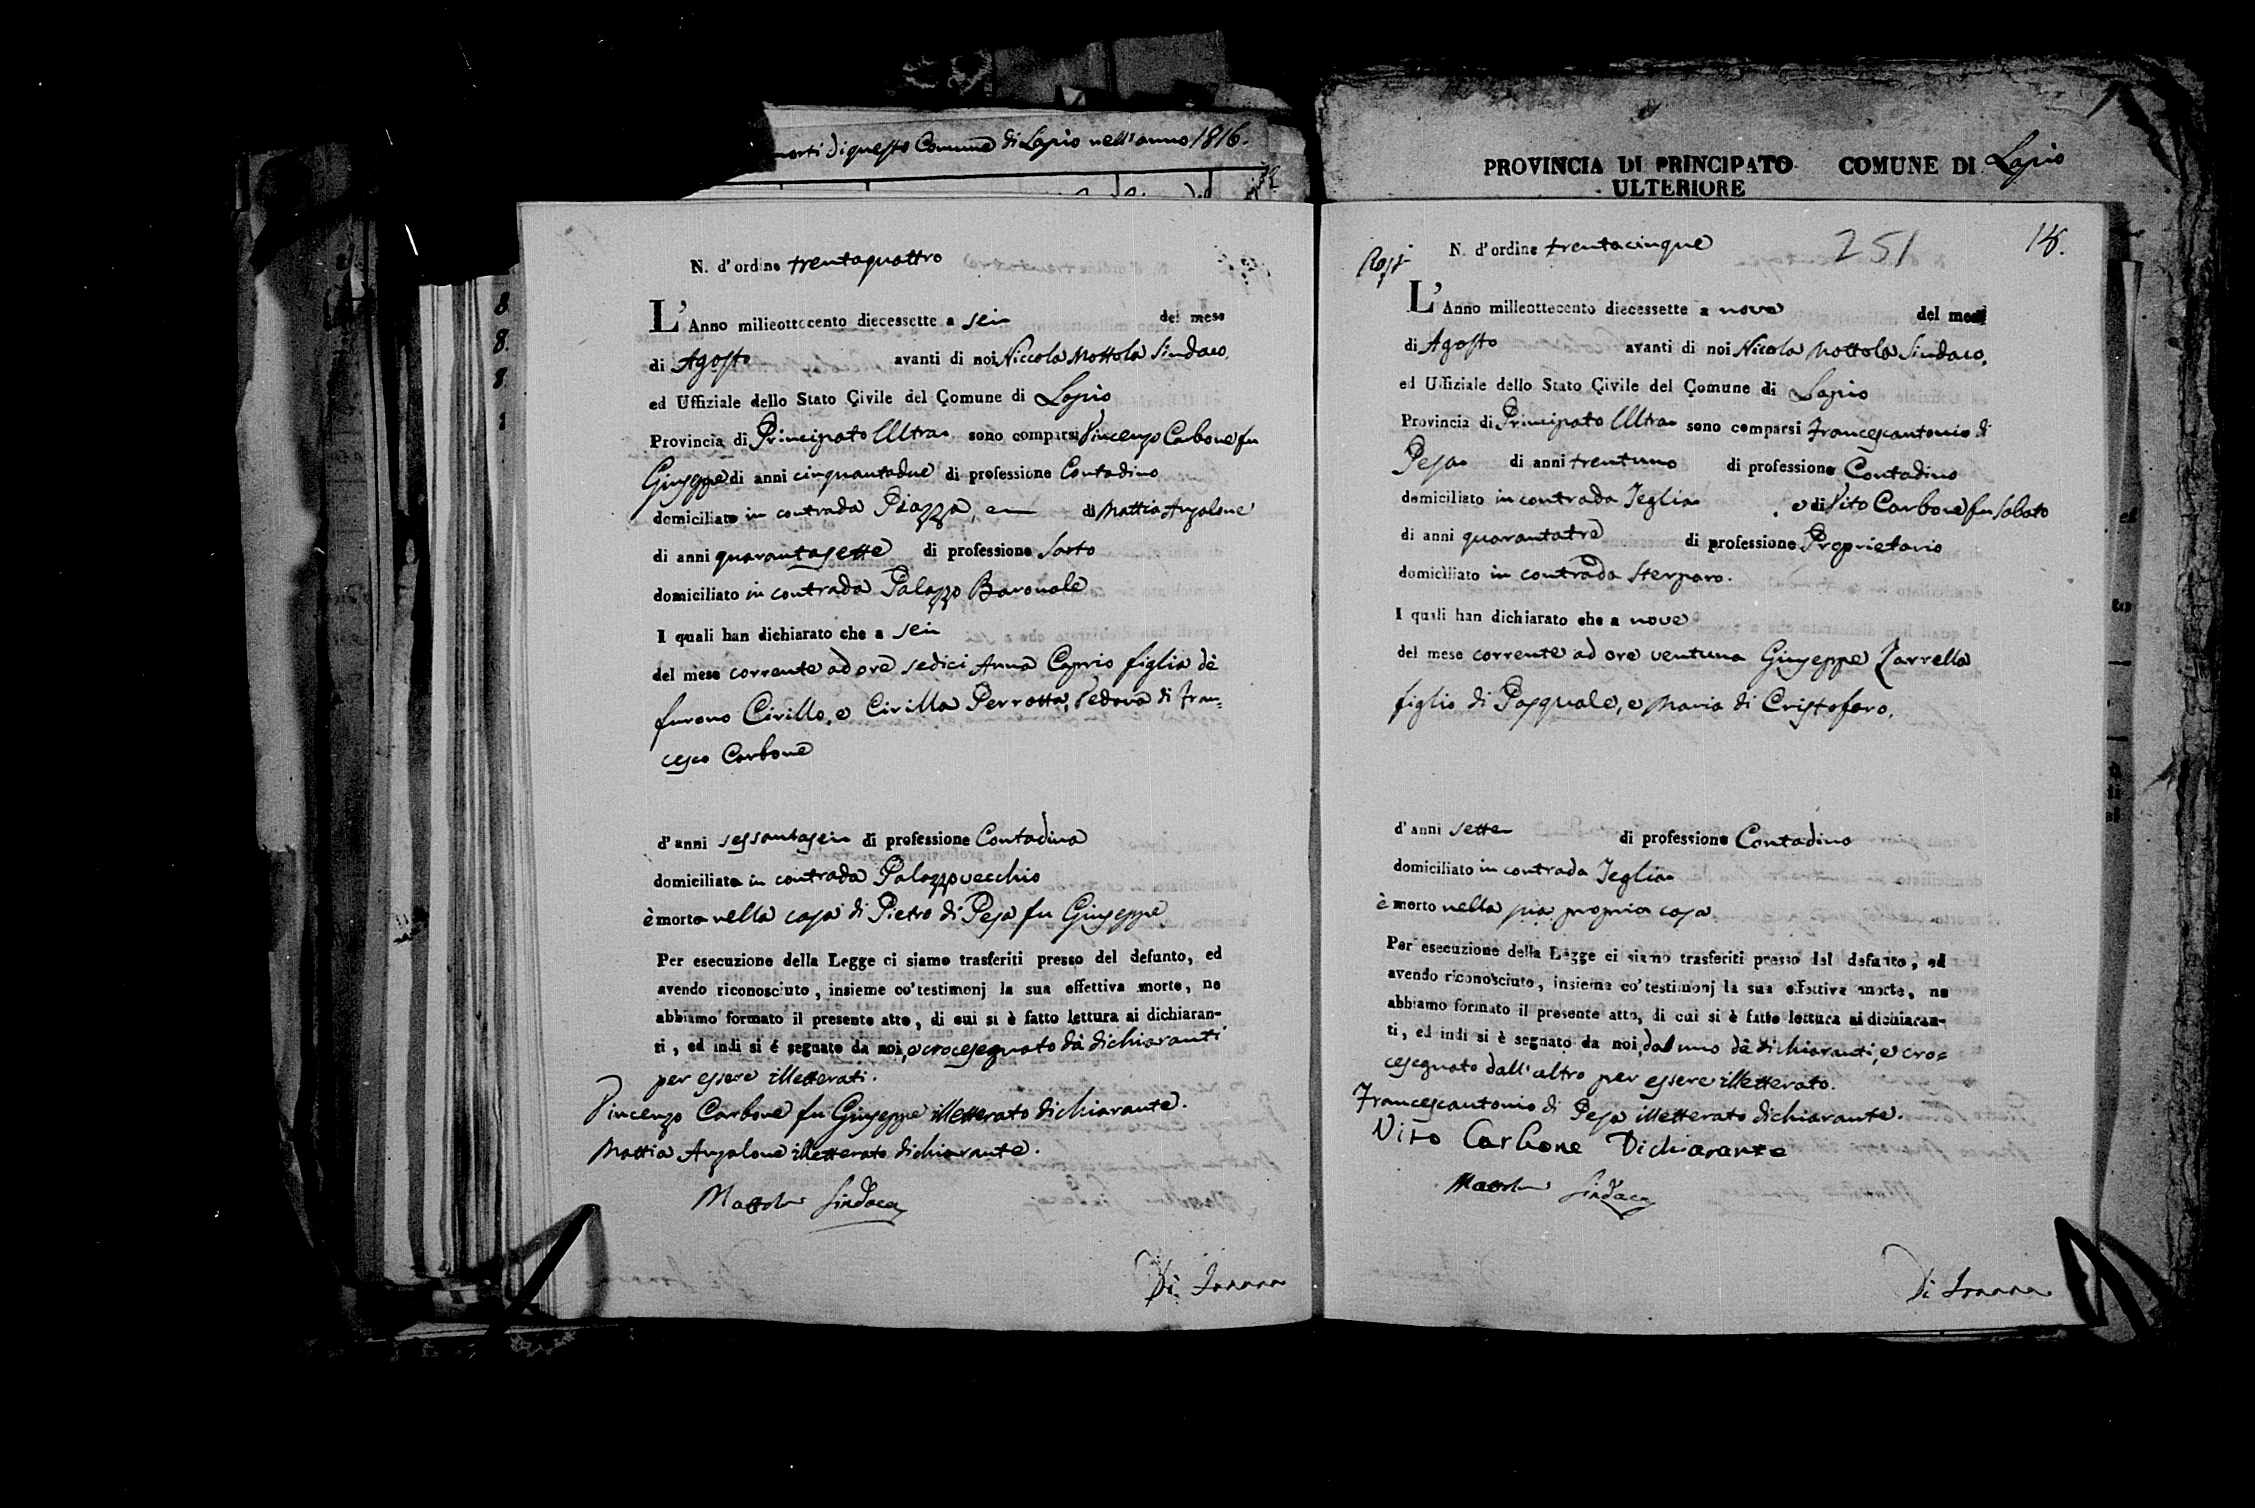 morti di questo Comune di Lapio nell'anno 1816.
N. d'ordine trentaquattro
L'Anno milleottocento diecessette a sei del mese
di Agosto avanti di noi Niccola Mottola Sindaco,
ed Uffiziale dello Stato Civile del Comune di Lapio
Provincia di Principato Ultra sono comparsi Vincenzo Carbone fu
Giuseppe di anni cinquantadue di professione Contadino
domiciliato in contrada Piazza, e di Mattia Anzalone
di anni quarantasette di professione Sarto
domiciliato in contrada Palazzo Baronale
I quali han dichiarato che a sei
del mese corrente ad ore sedici Anna Caprio figlia dè
furono Cirillo, e Cirilla Perrotta, Vedova di Fran=
cesco Carbone
d'anni sessantasei di professione Contadina
domiciliata in contrada Palazzovecchio
è morta nella casa di Pietro di Pesa fu Giuseppe.
Per esecuzione della Legge ci siamo trasferiti presso del defunto, ed
avendo riconosciuto, insieme co' testimonj la sua effettiva morte, ne
abbiamo formato il presente atto, di cui si è fatto lettura ai dichiaran-
ti, ed indi si é segnato da noi, e crocesegnato dà dichiaranti
per essere illetterati.
Vincenzo Carbone fu Giuseppe illetterato dichiarante.
Mattia Anzalone illetterato dichiarante.
Mottola Sindaco
PROVINCIA DI PRINCIPATO COMUNE DI Lapio
ULTERIORE
N. d'ordine trentacinque 251 18.
L'Anno milleottocento diecessette a nove del mese
di Agosto avanti di noi Nicola Mottola Sindaco,
ed Uffiziale dello Stato Civile del Comune di Lapio
Provincia di Principato Ultra sono comparsi Francescantonio di
Pesa di anni trentuno di professione Contadino
domiciliato in contrada Teglia e di Vito Carbone fu Sabato
di anni quarantatrè di professione Proprietario
domiciliato in contrada Sterparo.
I quali han dichiarato che a nove
del mese corrente ad ore ventuna Giuseppe Zarrella
figlio di Pasquale, e Maria di Cristofaro.
d'anni sette di professione Contadino
domiciliato in contrada Teglia
è morto nella sua propria casa
Per esecuzione della Legge ci siamo trasferiti presso del defunto, ed
avendo riconosciuto, insieme co' testimonj la sua effettiva morte, ne
abbiamo formato il presente atto, di cui si è fatto lettura ai dichiaran-
ti, ed indi si è segnato da noi, dal uno dè dichiaranti, e cro=
cesegnato dall'altro per essere illetterato.
Francescantonio di Pesa illetterato dichiarante.
Vito Carbone Dichiarante
Mottola Sindaco